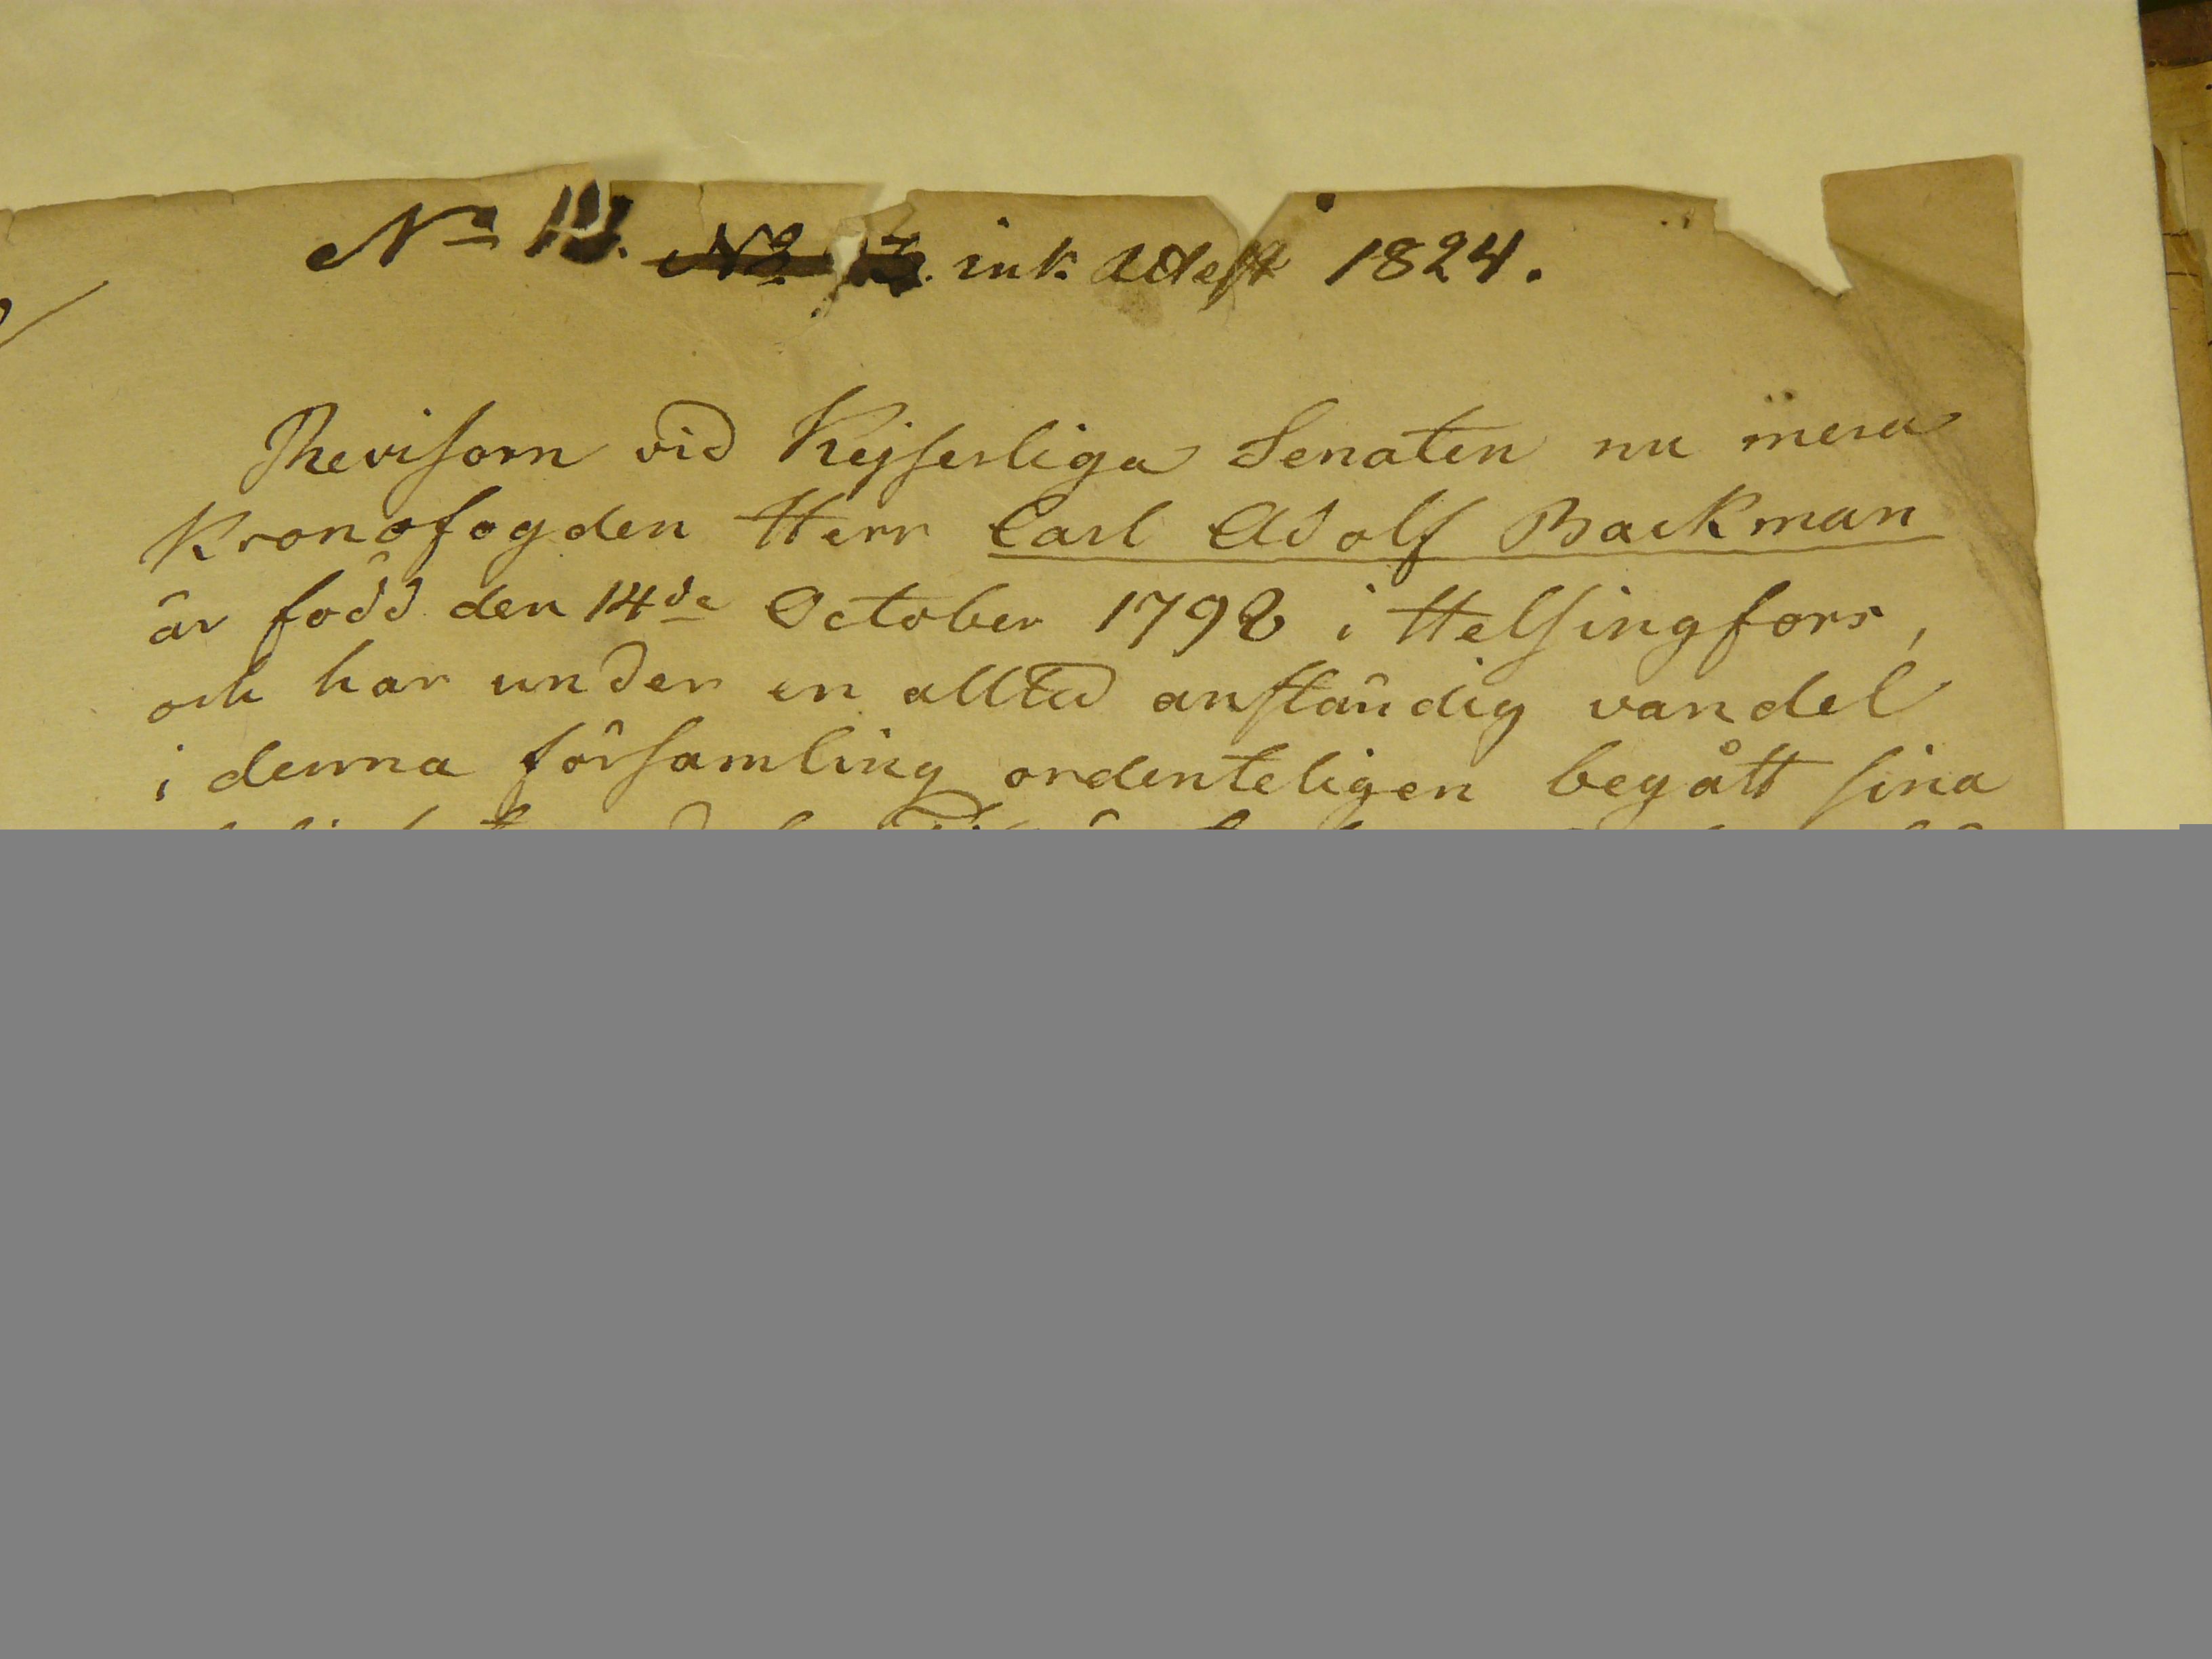 No ink. Attest 1824.
Revisorn vid Kejserliga Senaten nu mera
Kronofogden Herr Carl Adolf Backman
är född den 14de October 1798 i Helsingfors,
och har under en alltid anständig vandel
i denna församling ordenteligen begått sina